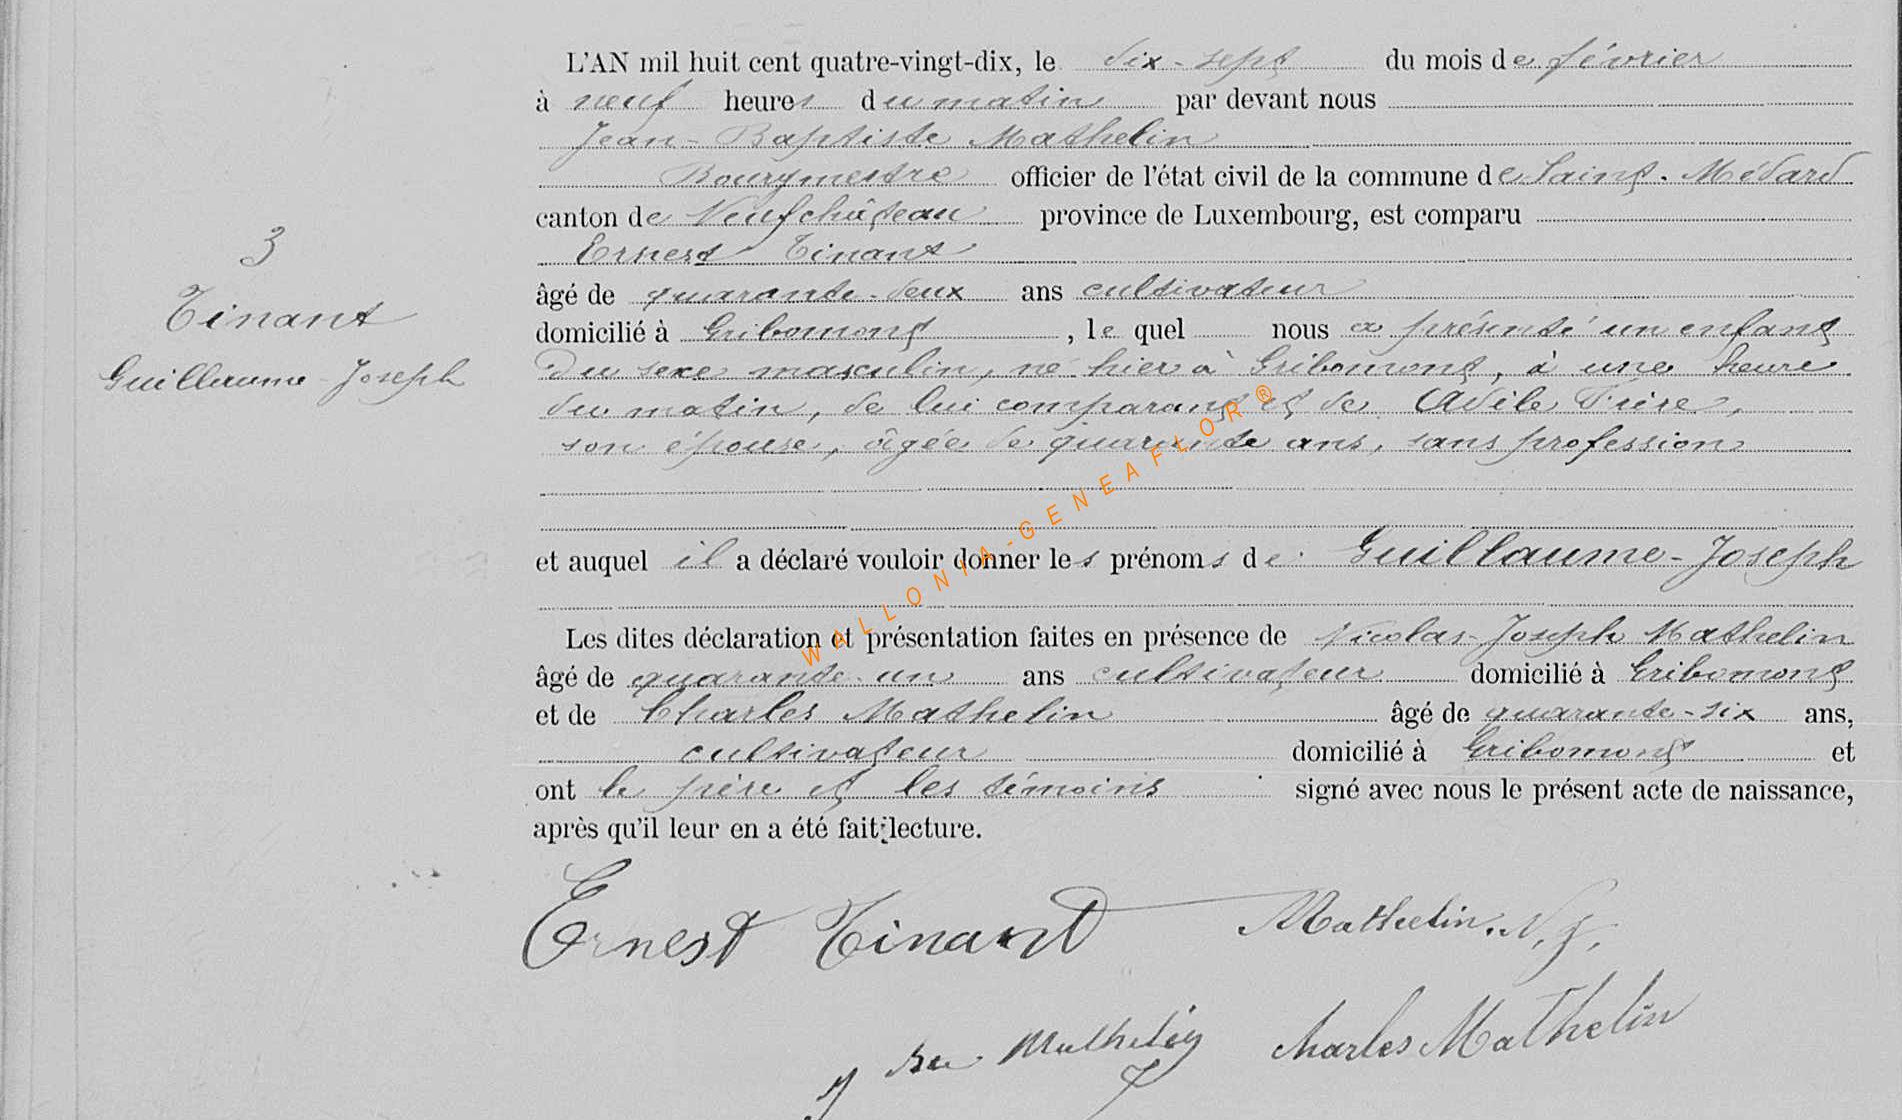 3
Tinant
Guillaume-Joseph
L'AN mil huit cent quatre-vingt-dix, le dix-sept du mois de février
à neuf heures du matin par devant nous
Jean-Baptiste Mathelin
Bourgmestre officier de l'état civil de la commune de Saint-Médard
canton de Neufchâteau province de Luxembourg, est comparu
Ernest Tinant
âgé de quarante-deux ans cultivateur
domicilié à Gribomont, le quel nous a présenté un enfant
du sexe masculin, né hier à Gribomont, à une heure
du matin, de lui comparant et de Adèle
son épouse, âgée de quarante ans, sans profession
et auquel il a déclaré vouloir donner les prénoms de Guillaume-Joseph
Les dites déclaration et présentation faites en présence de Nicolas-Joseph Mathelin
âgé de quarante-un ans cultivateur domicilié à Gribomont
et de Charles Mathelin âgé de quarante-six ans,
cultivateur domicilié à Gribomont et
ont le père et les témoins signé avec nous le présent acte de naissance,
après qu'il leur en a été fait lecture.
Ernest Tinant Mathelin. N. J.
Mathelin Charles Mathelin
WALLONIA-GENEAFLOR®